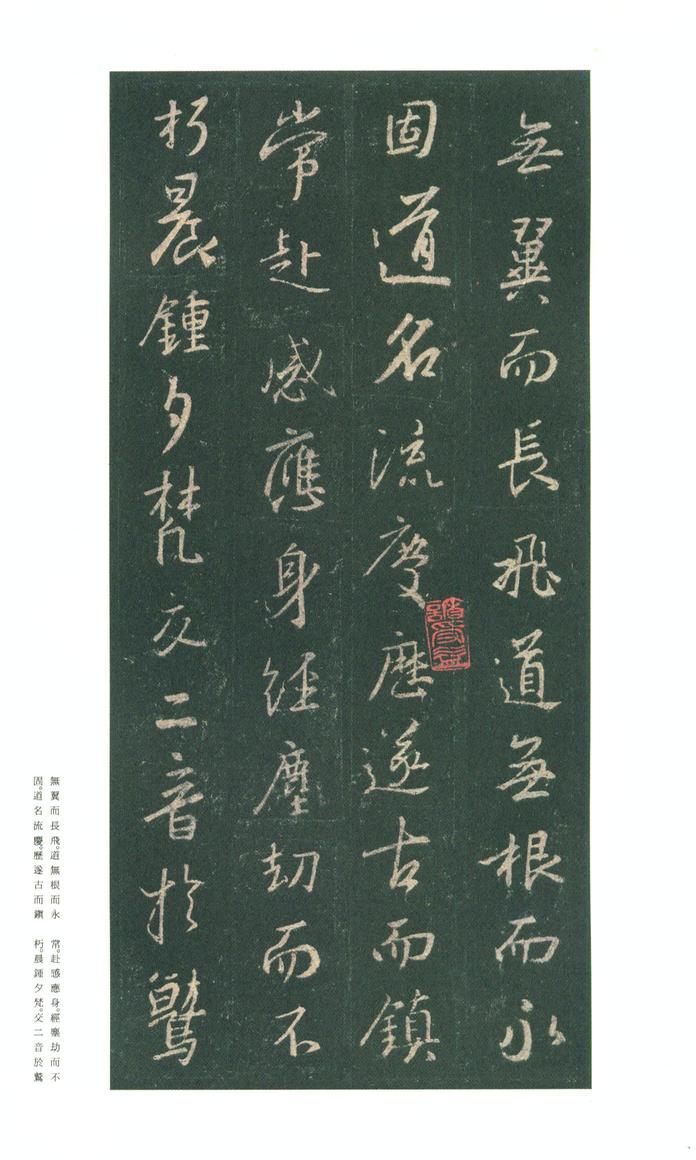 無翼而長飛道無根而永
固道名流慶歷遂古而鎮
常赴感應身經塵劫而不
朽晨鍾夕梵交二音於鷲
無翼而長飛。道無根而永
固。道名流慶。歷遂古而鎮
常。赴感應身。經塵劫而不
朽。晨鍾夕梵。交二音於鷲